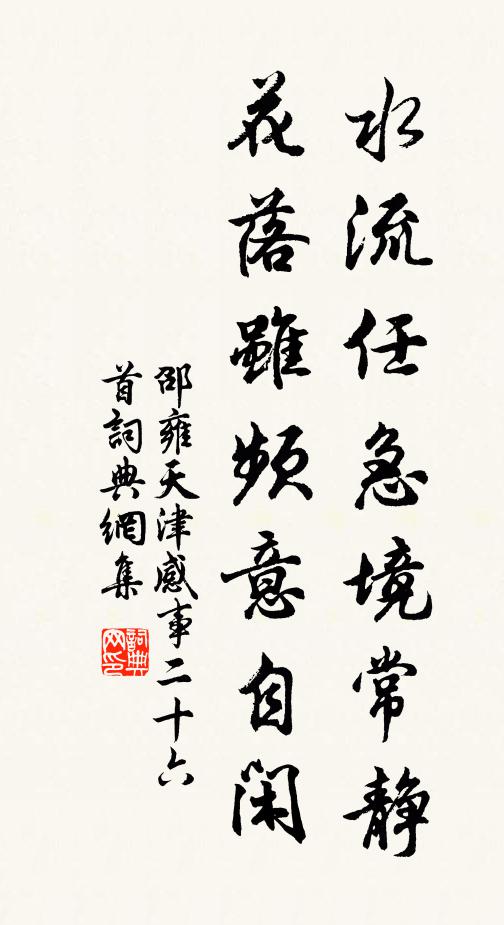 水流任急境常静
花落雖頻意自閑
邵雍天津感事二十六
首詞典網集
詞典网印